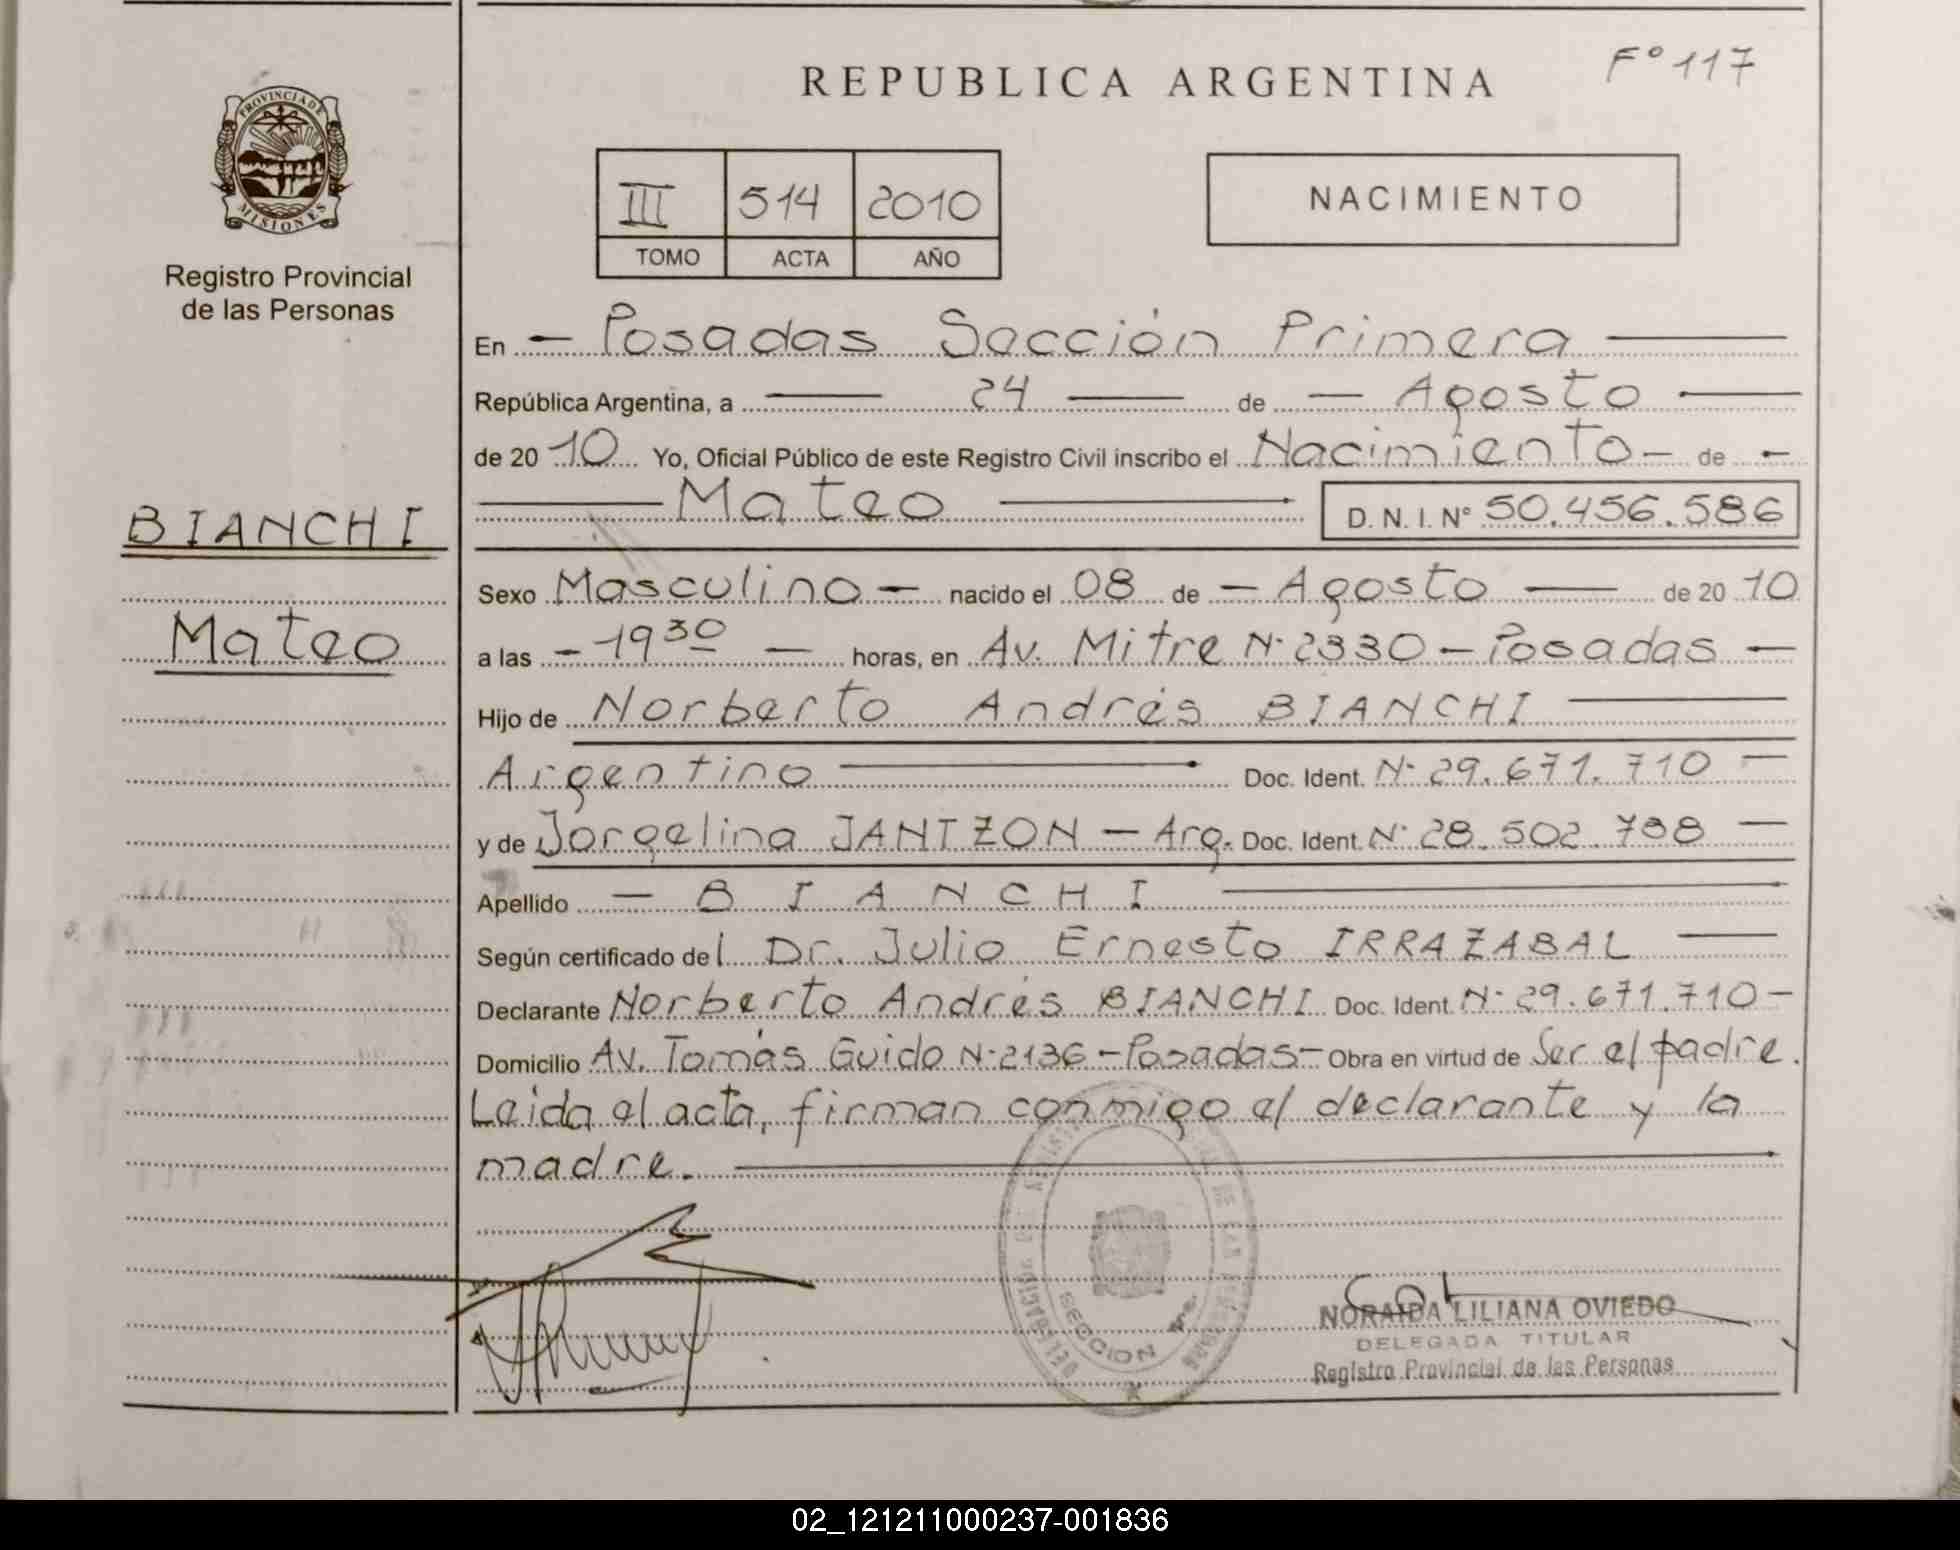 F° 117
REPUBLICA ARGENTINA
PROVINCIA DE
MISIONES
Registro Provincial
de las Personas
III 514 2010
TOMO ACTA AÑO
NACIMIENTO
En - Posadas Sección Primera
República Argentina, a 24 de - Agosto
de 20 10 Yo, Oficial Público de este Registro Civil inscribo el Nacimiento - de -
Mateo D. N. I. N° 50.456.586
BIANCHI
Mateo
Sexo Masculino - nacido el 08 de - Agosto de 20 10
a las - 19 30 - horas, en Av. Mitre N° 2330 - Posadas -
Hijo de Norberto Andrés BIANCHI
Argentino Doc. Ident. N° 29.671.710 -
y de Jorgelina JANTZON - Arg. Doc. Ident. N° 28.502.788 -
Apellido - BIANCHI
Según certificado del Dr. Julio Ernesto IRRAZABAL
Declarante Norberto Andrés BIANCHI Doc. Ident. N° 29.671.710 -
Domicilio Av. Tomás Guido N° 2136 - Posadas - Obra en virtud de Ser el padre.
Leida el acta, firman conmigo el declarante y la
madre.
SECCION
NORAIDA LILIANA OVIEDO
DELEGADA TITULAR
Registro Provincial de las Personas
02_121211000237-001836